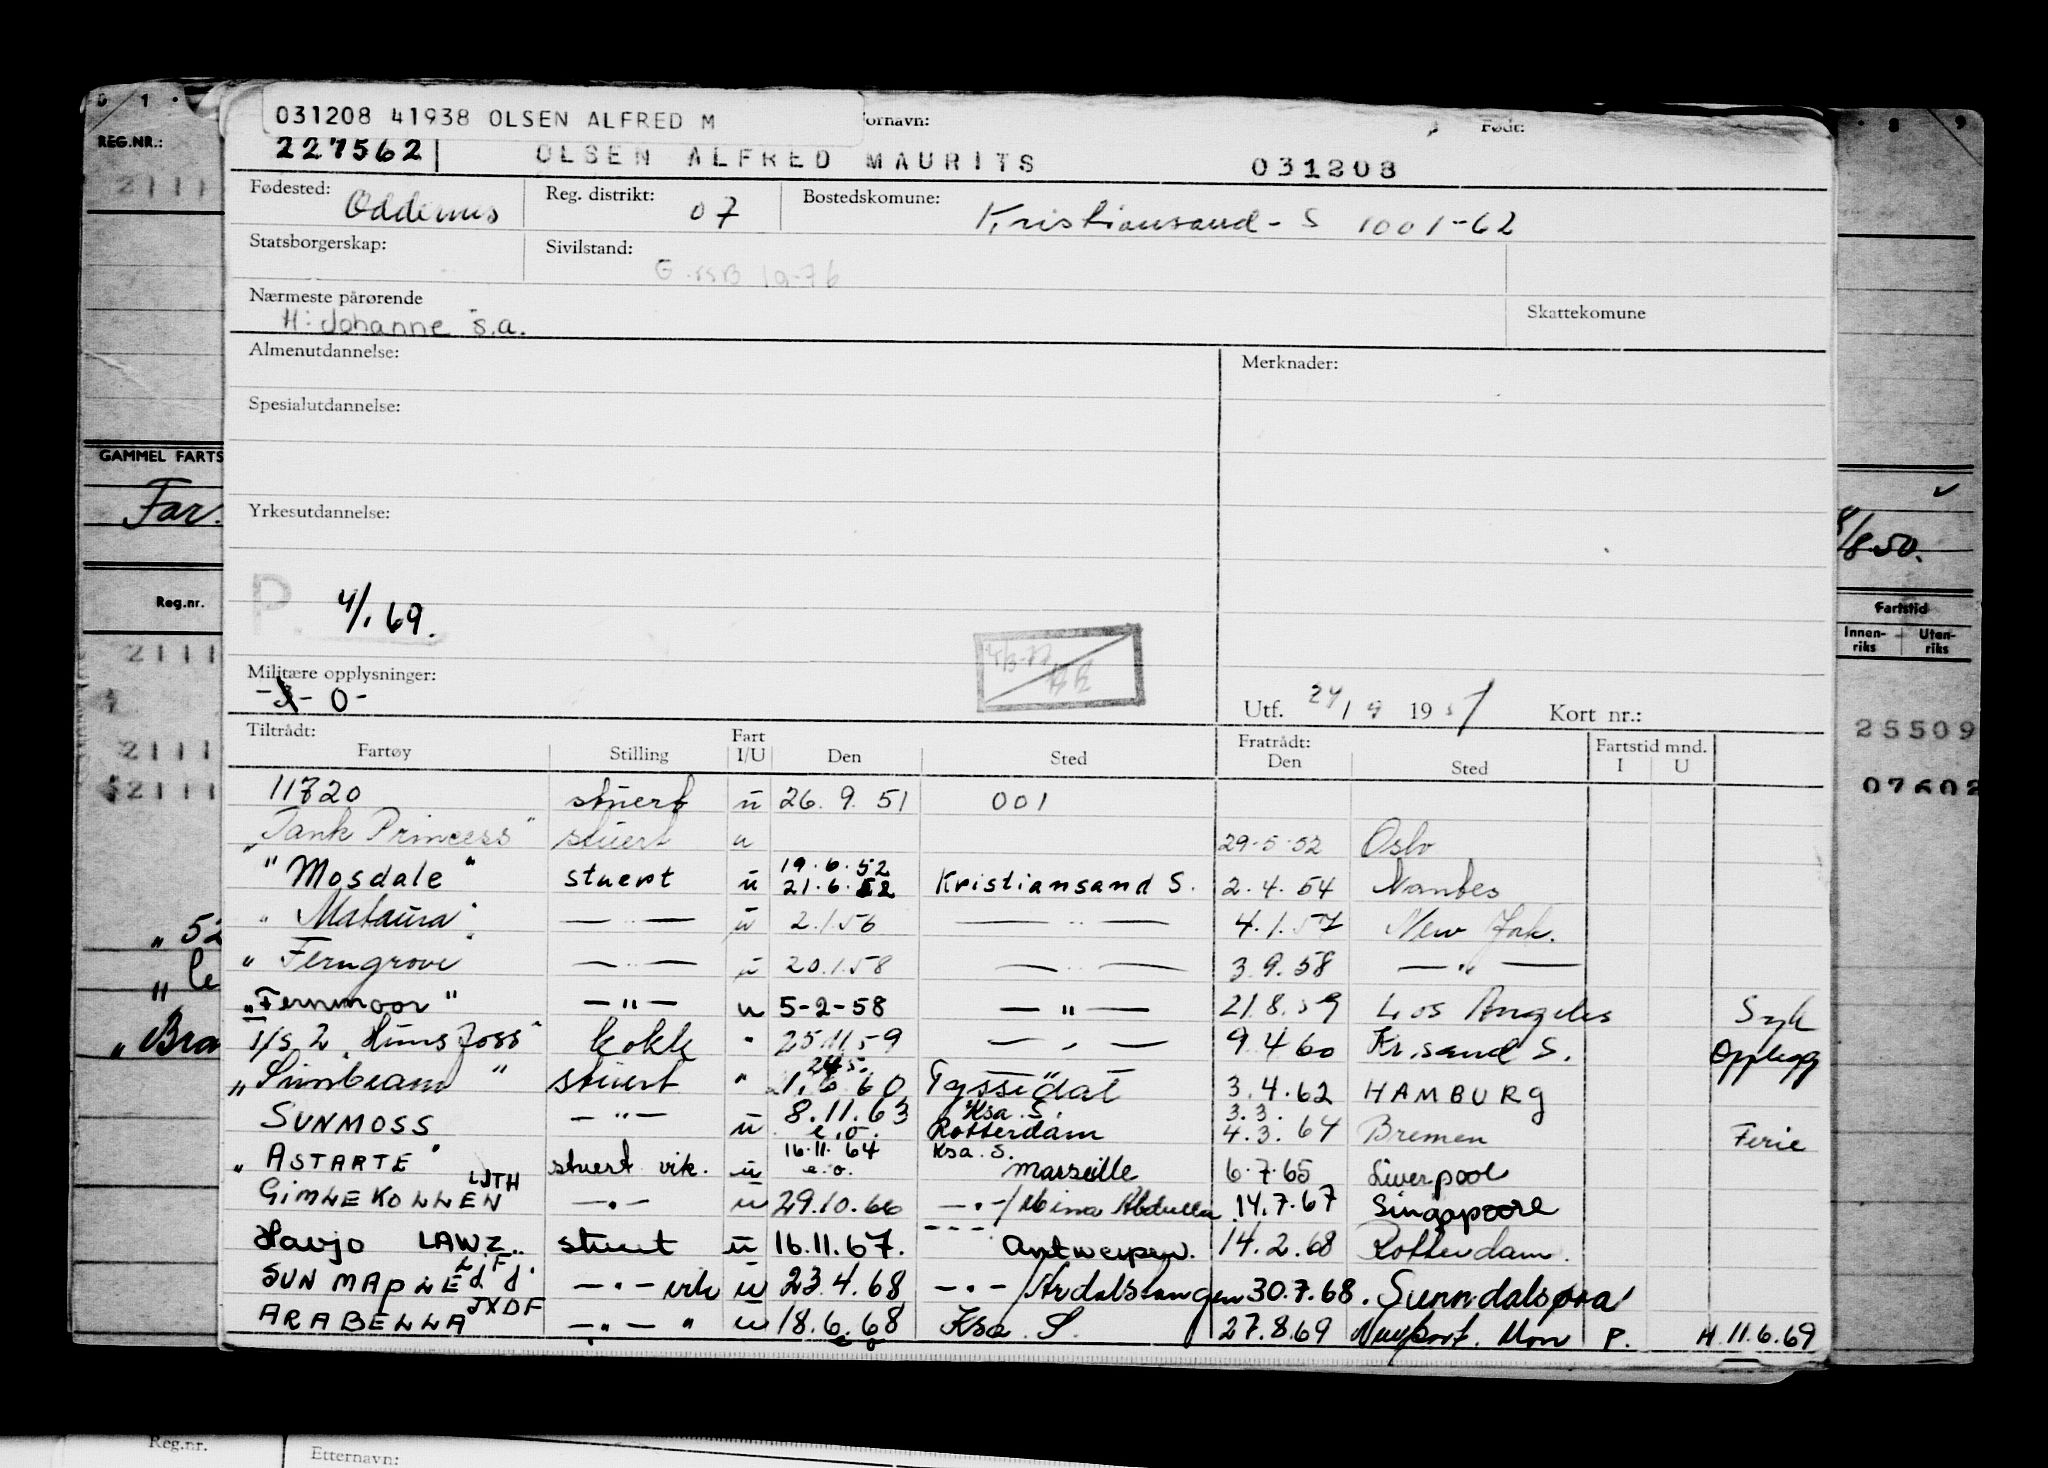 031208 41938 OLSEN ALFRED M
Fornavn: Født:
227562 OLSEN ALFRED MAURITS 031208
REG.NR.:
Fødested: Oddernes Reg. distrikt: 07 Bostedskomune: Kristiansand-S 1001-62
Statsborgerskap: Sivilstand:
Nærmeste pårørende
H: Johanne s.a.
Skattekomune
Almenutdannelse: Merknader:
Spesialutdannelse:
GAMMEL FARTS
Far.
Yrkesutdannelse:
8/8.50.
P. 4/1.69.
Reg.nr.
Fartstid
Innen-riks Uten-riks
Militære opplysninger:
-0-
Utf. 24/9 1957 Kort nr.:
Tiltrådt: Fratrådt: Fartstid mnd.
Fartøy Stilling Fart I/U Den Sted Den Sted I U
11720 stuert u 26.9.51 001
"Tank Princess" stuert u 29-5-52 Oslo
"Mosdale" stuert u 19.6.52 21.6.52 Kristiansand S. 2.4.54 Nantes
"Mataura" — " — u 2.1.56 — " — 4.1.57 New York.
"Ferngrove" — " — u 20.1.58 — " — 3.9.58 — " —
"Fernmoor" — " — u 5-2-58 — " — 21.8.59 Los Angeles Syk
"Hunsfoss" kokk " 25.11.59 — " — 9.4.60 Kr.sand S. Opplegg
"Sunbeam" stuert " 1.6.60 Tyssedal 3.4.62 HAMBURG
SUNMOSS — " — u 8.11.63 e.o. Ksa. S. Rotterdam 3.3. 4.3.64 Bremen Ferie
"ASTARTE" stuert vik. u 16.11.64 e.o. Ksa. S. Marseille 6.7.65 Liverpool
GIMLEKOLLEN LJTH — " — u 29.10.66 — " —/Mina Abdulla 14.7.67 Singapoore
Havjo LAWZ stuert u 16.11.67. --- Antwerpen. 14.2.68 Rotterdam.
SUNMAPLE — " — vik u 23.4.68 — " —/Årdalstangen 30.7.68. Sunndalsøra
ARABELLA JXDF — " — " u 18.6.68 e o Ksa. S. 27.8.69 Newport. Mon P. H. 11.6.69
25509
07602
"Bra
Reg.nr. Etternavn: